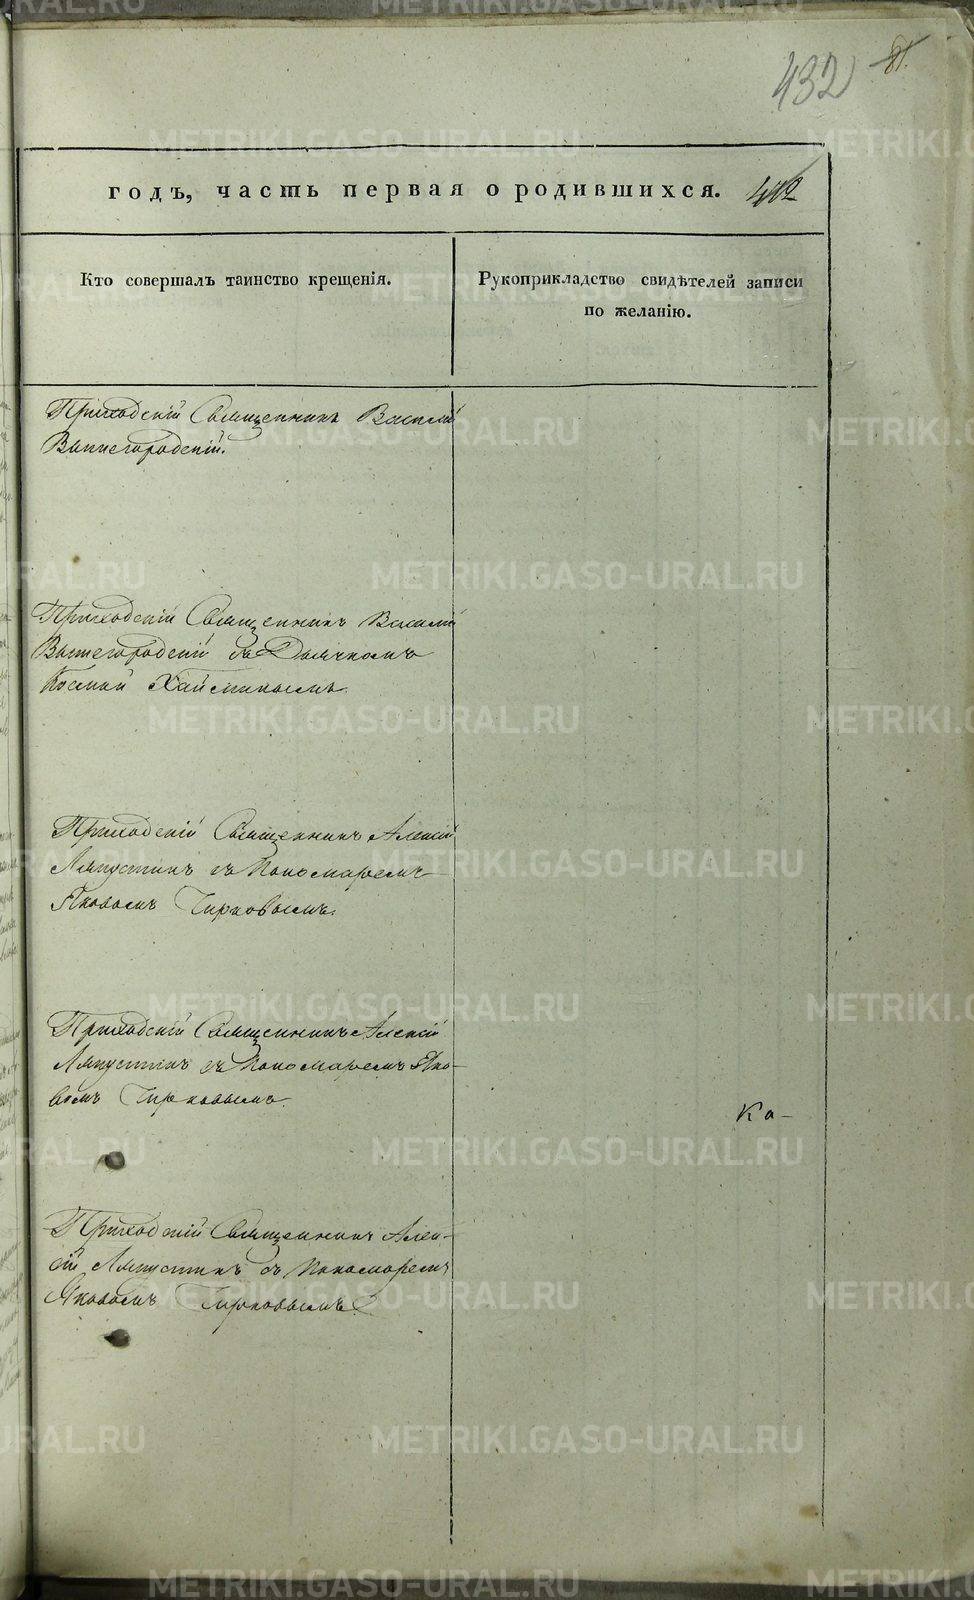 432 81.
годъ, часть первая о родившихся. 402
Кто совершалъ таинство крещенія.
Рукоприкладство свидѣтелей записи
по желанію.
Приходскій Священникъ Василій
Вышегородскій.
Приходскій Священникъ Василій
Вышегородскій съ Дьячкомъ
Космой
Приходскій Священникъ Алексій
Ляпустинъ съ Пономаремъ
Яковомъ Чирковымъ.
Приходскій Священникъ Алексій
Ляпустинъ съ Пономаремъ Яко-
вомъ Чирковымъ.
Ка-
Приходскій Священникъ Алек-
сій Ляпустинъ съ Пономаремъ
Яковомъ Чирковымъ.
METRIKI.GASO-URAL.RU